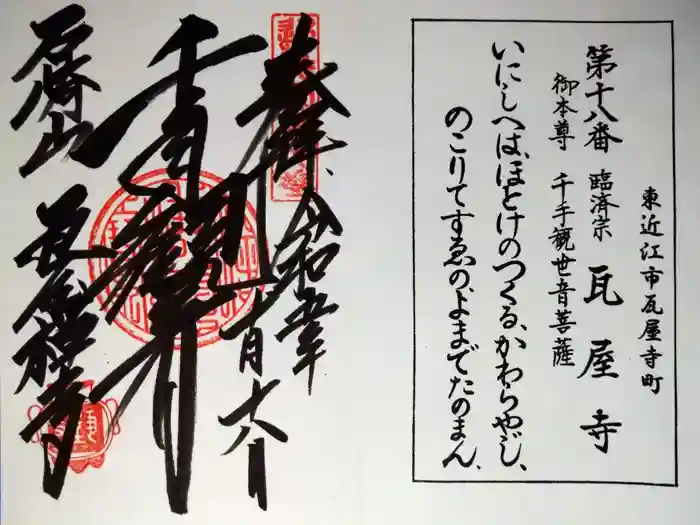 東近江市瓦屋寺町
第十八番 臨済宗 瓦屋寺
御本尊 千手観世音菩薩
いにしへは、ほとけのつくる、かわらやじ、
のこりてすゑの、よまでたのまん、
奉拝
令和五年
十月十八日
千手観世音
石崎山
瓦屋禅寺